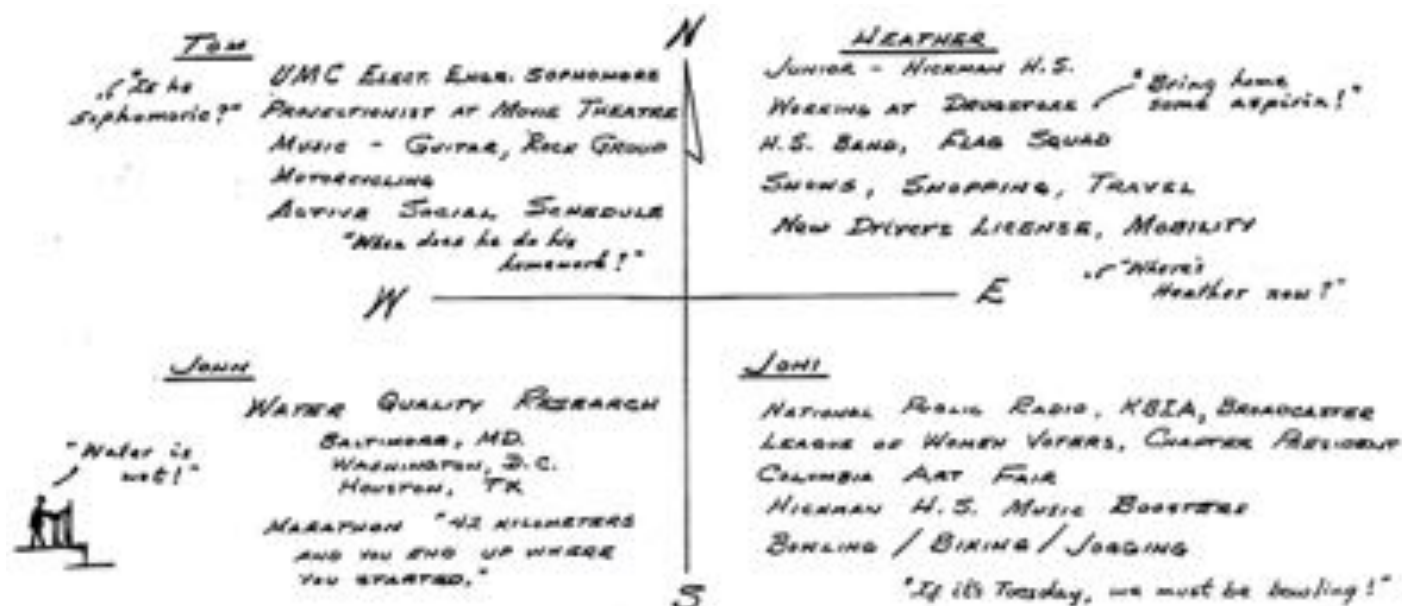 N
TOM
"Is he
sophomoric?"
UMC ELECT. ENGR. SOPHOMORE
PROJECTIONIST AT MOVIE THEATRE
MUSIC - GUITAR, ROCK GROUP
MOTORCYCLING
ACTIVE SOCIAL SCHEDULE
"When does he do his
homework?"
HEATHER
JUNIOR - HICKMAN H.S.
WORKING AT DRUGSTORE
"Bring home
some aspirin!"
H.S. BAND, FLAG SQUAD
SHOWS, SHOPPING, TRAVEL
NEW DRIVERS LICENSE, MOBILITY
"Where's
Heather now?"
W
E
JOHN
WATER QUALITY RESEARCH
BALTIMORE, MD.
WASHINGTON, D.C.
HOUSTON, TX
"Water is
wet!"
MARATHON "42 KILOMETERS
AND YOU END UP WHERE
YOU STARTED."
JONI
NATIONAL PUBLIC RADIO, KBIA, BROADCASTER
LEAGUE OF WOMEN VOTERS, CHAPTER PRESIDENT
COLUMBIA ART FAIR
HICKMAN H.S. MUSIC BOOSTERS
BOWLING / BIKING / JOGGING
"If it's Tuesday, we must be bowling!"
S